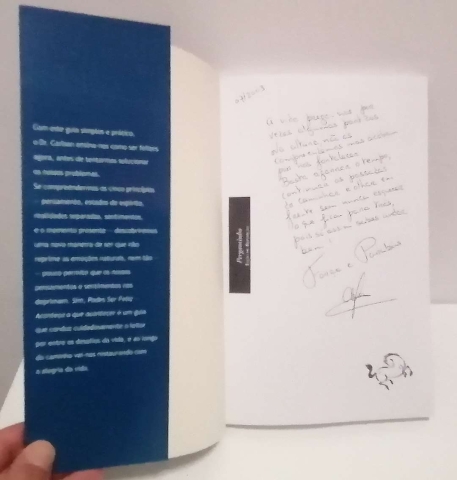 Com este guia simples e prático,
o Dr. Carlson ensina-nos como ser felizes
agora, antes de tentarmos solucionar
os nossos problemas.
Se compreendermos os cinco princípios
– pensamento, estados de espírito,
realidades separadas, sentimentos,
e o momento presente – descobriremos
uma nova maneira de ser que não
reprime as emoções naturais, nem tão-
-pouco permite que os nossos
pensamentos e sentimentos nos
deprimam. Sim, Podes Ser Feliz
Aconteça o que acontecer é um guia
que conduz cuidadosamente o leitor
por entre os desafios da vida, e ao longo
do caminho vai-nos restaurando com
a alegria da vida.
Pergaminho
A vida prega-nos por
vezes algumas partidas
não as
compreendemos mas acabam
por nos fortalecer
Basta o tempo,
continuar as passadas
do caminho e olhar em
frente sem nunca esquecer
o que ficou para trás,
para
bem!
Força e